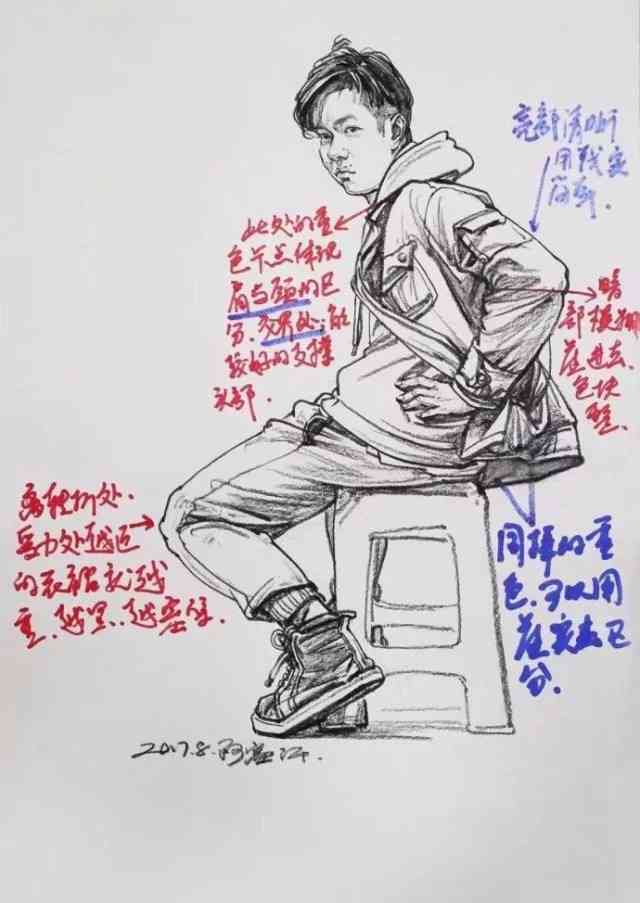 亮部清晰
用线实
此处的重
色节点体现
肩与颈的区
分、交界处;能
较好的支撑
头部.
暗
部模糊
虚进去.
色块
整.
离转折处、
受力处越近
的衣褶就越
重、越黑、越密集.
同样的重
色、可以用
虚实去区
分.
2017.8.